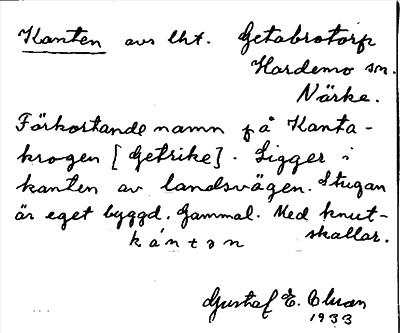 Kanten avs lht. Getabrotorp
Hardemo sn.
Närke.
Förkortande namn på Kanta-
krogen [Getrike]. Ligger i
kanten av landsvägen. Stugan
är eget byggd. Gammal. Med knut-
skallar.
kántən
Gustaf E. Olsson
1933